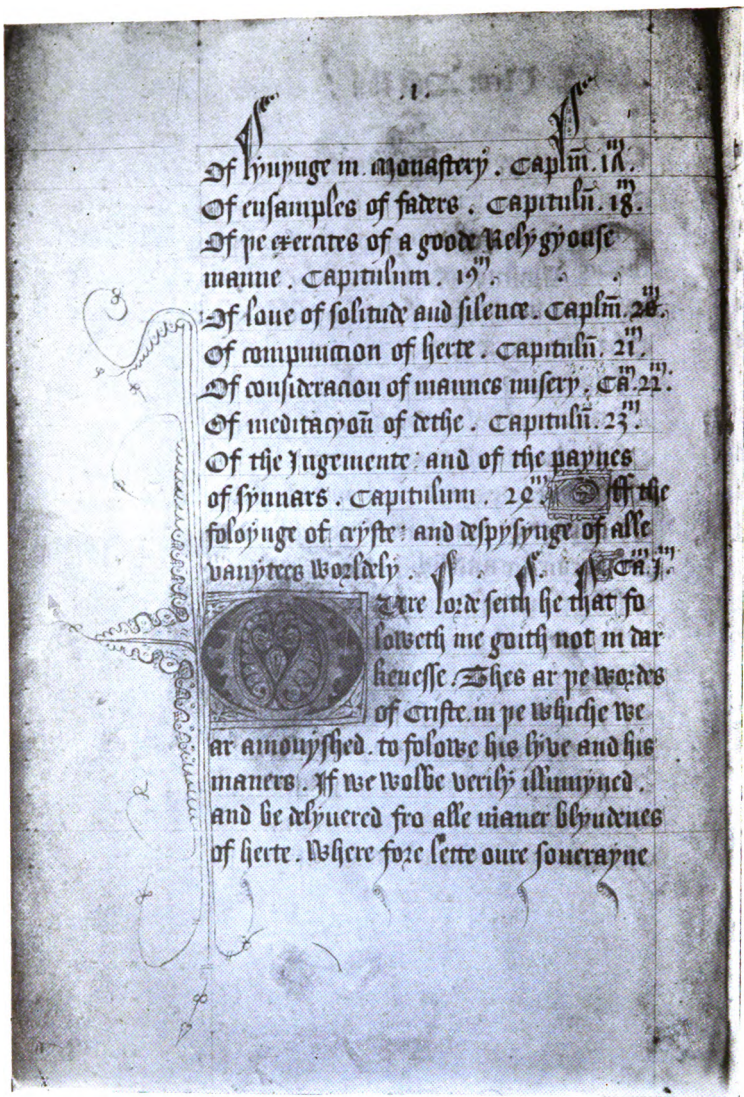 .1.
Of lyuynge in. Monastery. Caplm̄. 1Λ.ᵐ
Of ensamples of faders. Capitulū. 18.ᵐ
Of þe exercites of a goode Relygyouse
manne. Capitulum. 19ᵐ.
Of loue of solitude and silence. Caplm̄. 20.ᵐ
Of compunccion of herte. Capitulū. 21ᵐ.
Of consideracion of mannes misery. Cā. 22.ᵐ
Of meditacyon̄ of dethe. Capitulū. 23.ᵐ
Of the Jugemente: and of the paynes
of synnars. Capitulum. 2ㄡ.ᵐ Off the
foloynge of cryste: and despysynge of alle
vanytees worldely. Cā. j.ᵐ
Oure lorde seith he that fo
loweth me goith not in dar
kenesse. Thes ar þe wordes
of Criste. in þe whiche we
ar amonyshed. to folowe his lyve and his
maners. If we wolbe verily illumyned.
and be delyuered fro alle maner blyndenes
of herte. Where fore lette oure souerayne